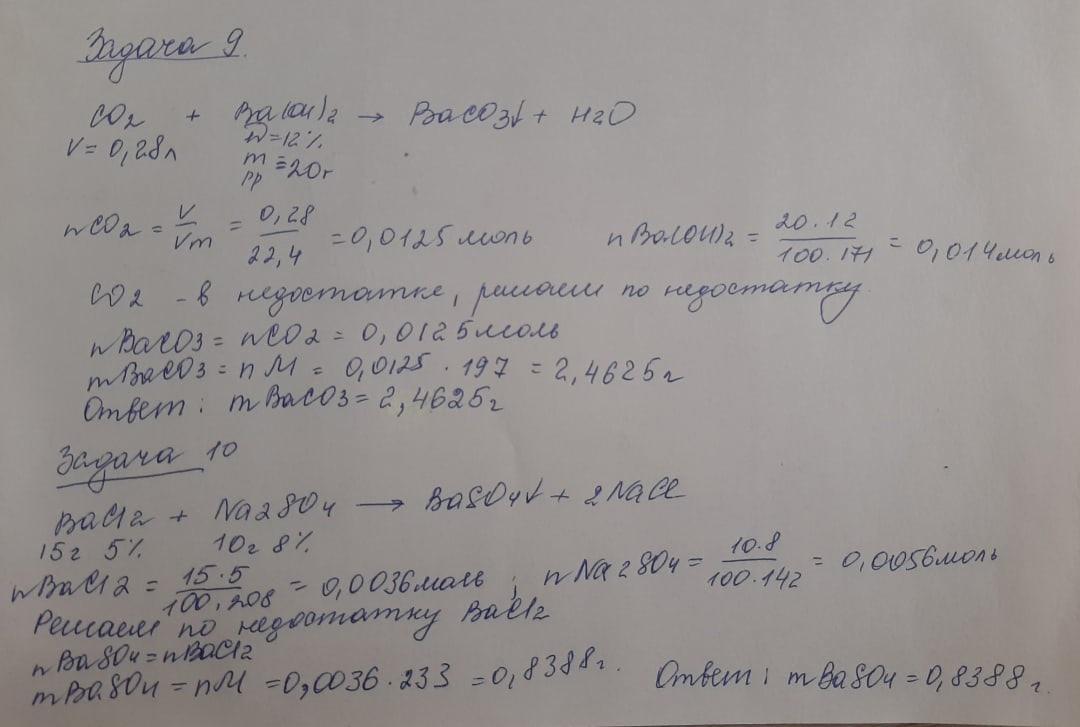 Задача 9.
CO2 + Ba(OH)2 → BaCO3↓ + H2O
V = 0,28л W=12%
m рр = 20г
nCO2 = V/Vm = 0,28/22,4 = 0,0125 моль nBa(OH)2 = 20·12/100·171 = 0,014моль
CO2 - в недостатке, решаем по недостатку.
nBaCO3 = nCO2 = 0,0125моль
mBaCO3 = nM = 0,0125 · 197 = 2,4625г
Ответ: mBaCO3 = 2,4625г
Задача 10
BaCl2 + Na2SO4 → BaSO4↓ + 2NaCl
15г 5% 10г 8%
nBaCl2 = 15·5/100·208 = 0,0036моль ; nNa2SO4 = 10·8/100·142 = 0,0056моль
Решаем по недостатку BaCl2
nBaSO4 = nBaCl2
mBaSO4 = nM = 0,0036·233 = 0,8388г. Ответ: mBaSO4 = 0,8388г.